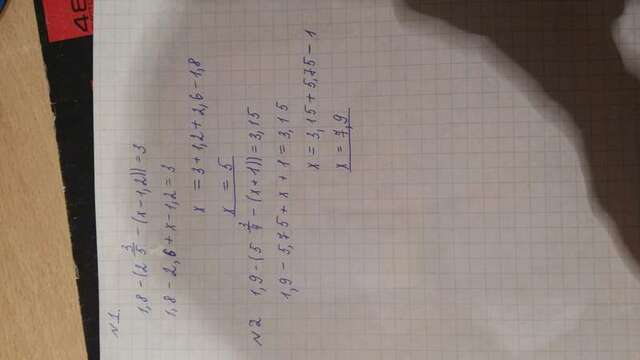 48
№1.
1,8 - (2 3/5 - (x - 1,2)) = 3
1,8 - 2,6 + x - 1,2 = 3
x = 3 + 1,2 + 2,6 - 1,8
x = 5
№2 1,9 - (5 3/4 - (x + 1)) = 3,15
1,9 - 5,75 + x + 1 = 3,15
x = 3,15 + 5,75 - 1
x = 7,9